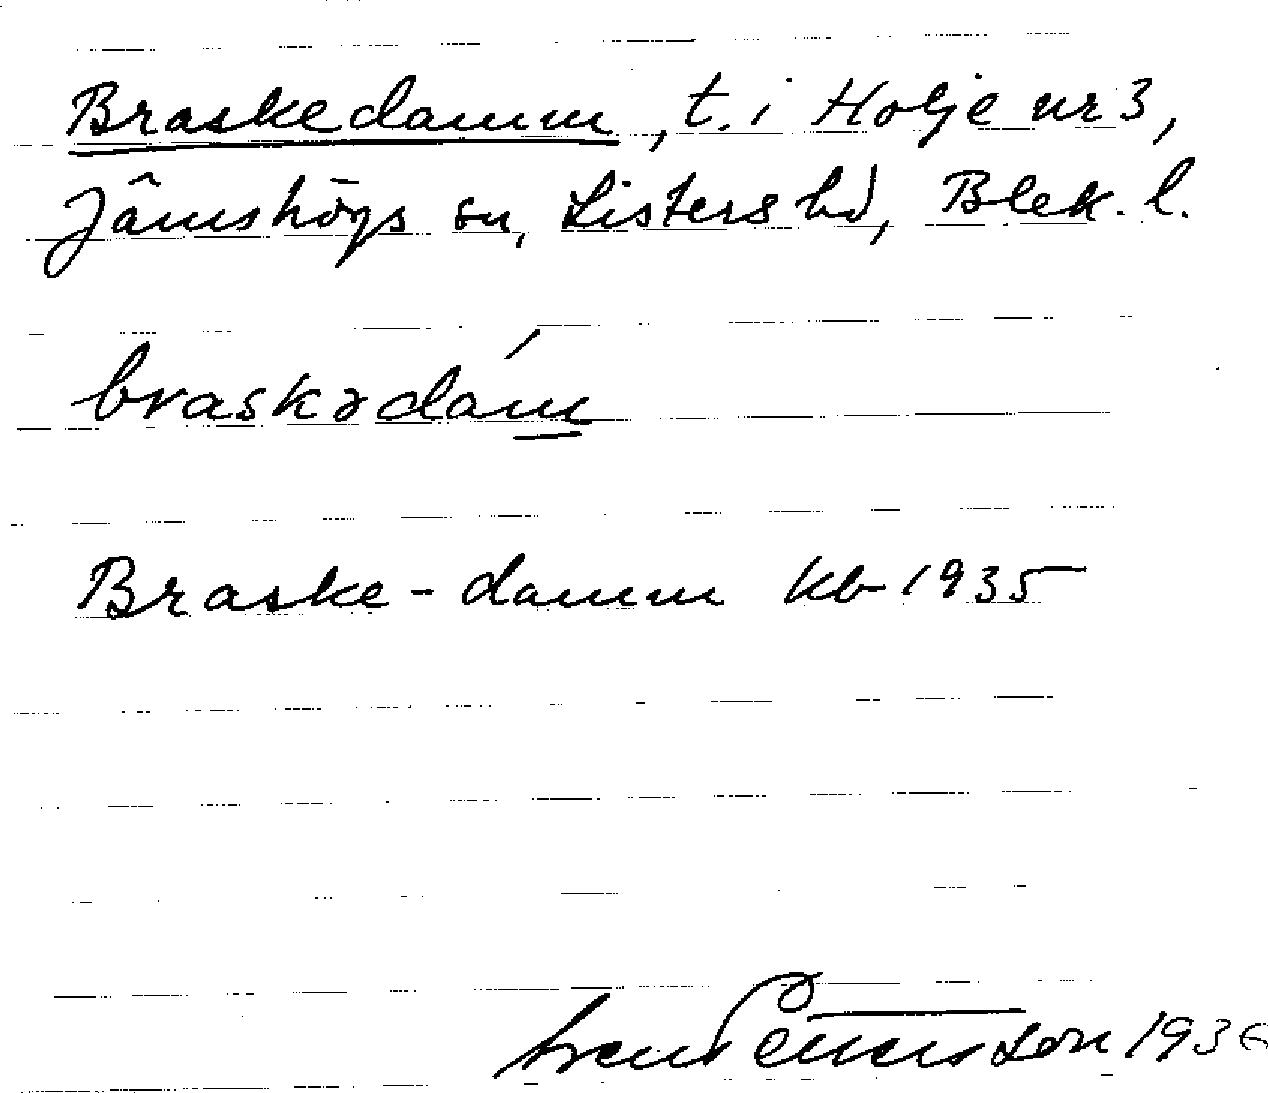 Braskedamm, t. i Holje nr 3,
Jämshögs sn, Listers hd, Blek. l.
braskədám
Braske-damm kb 1935
Sven Pettersson 1936